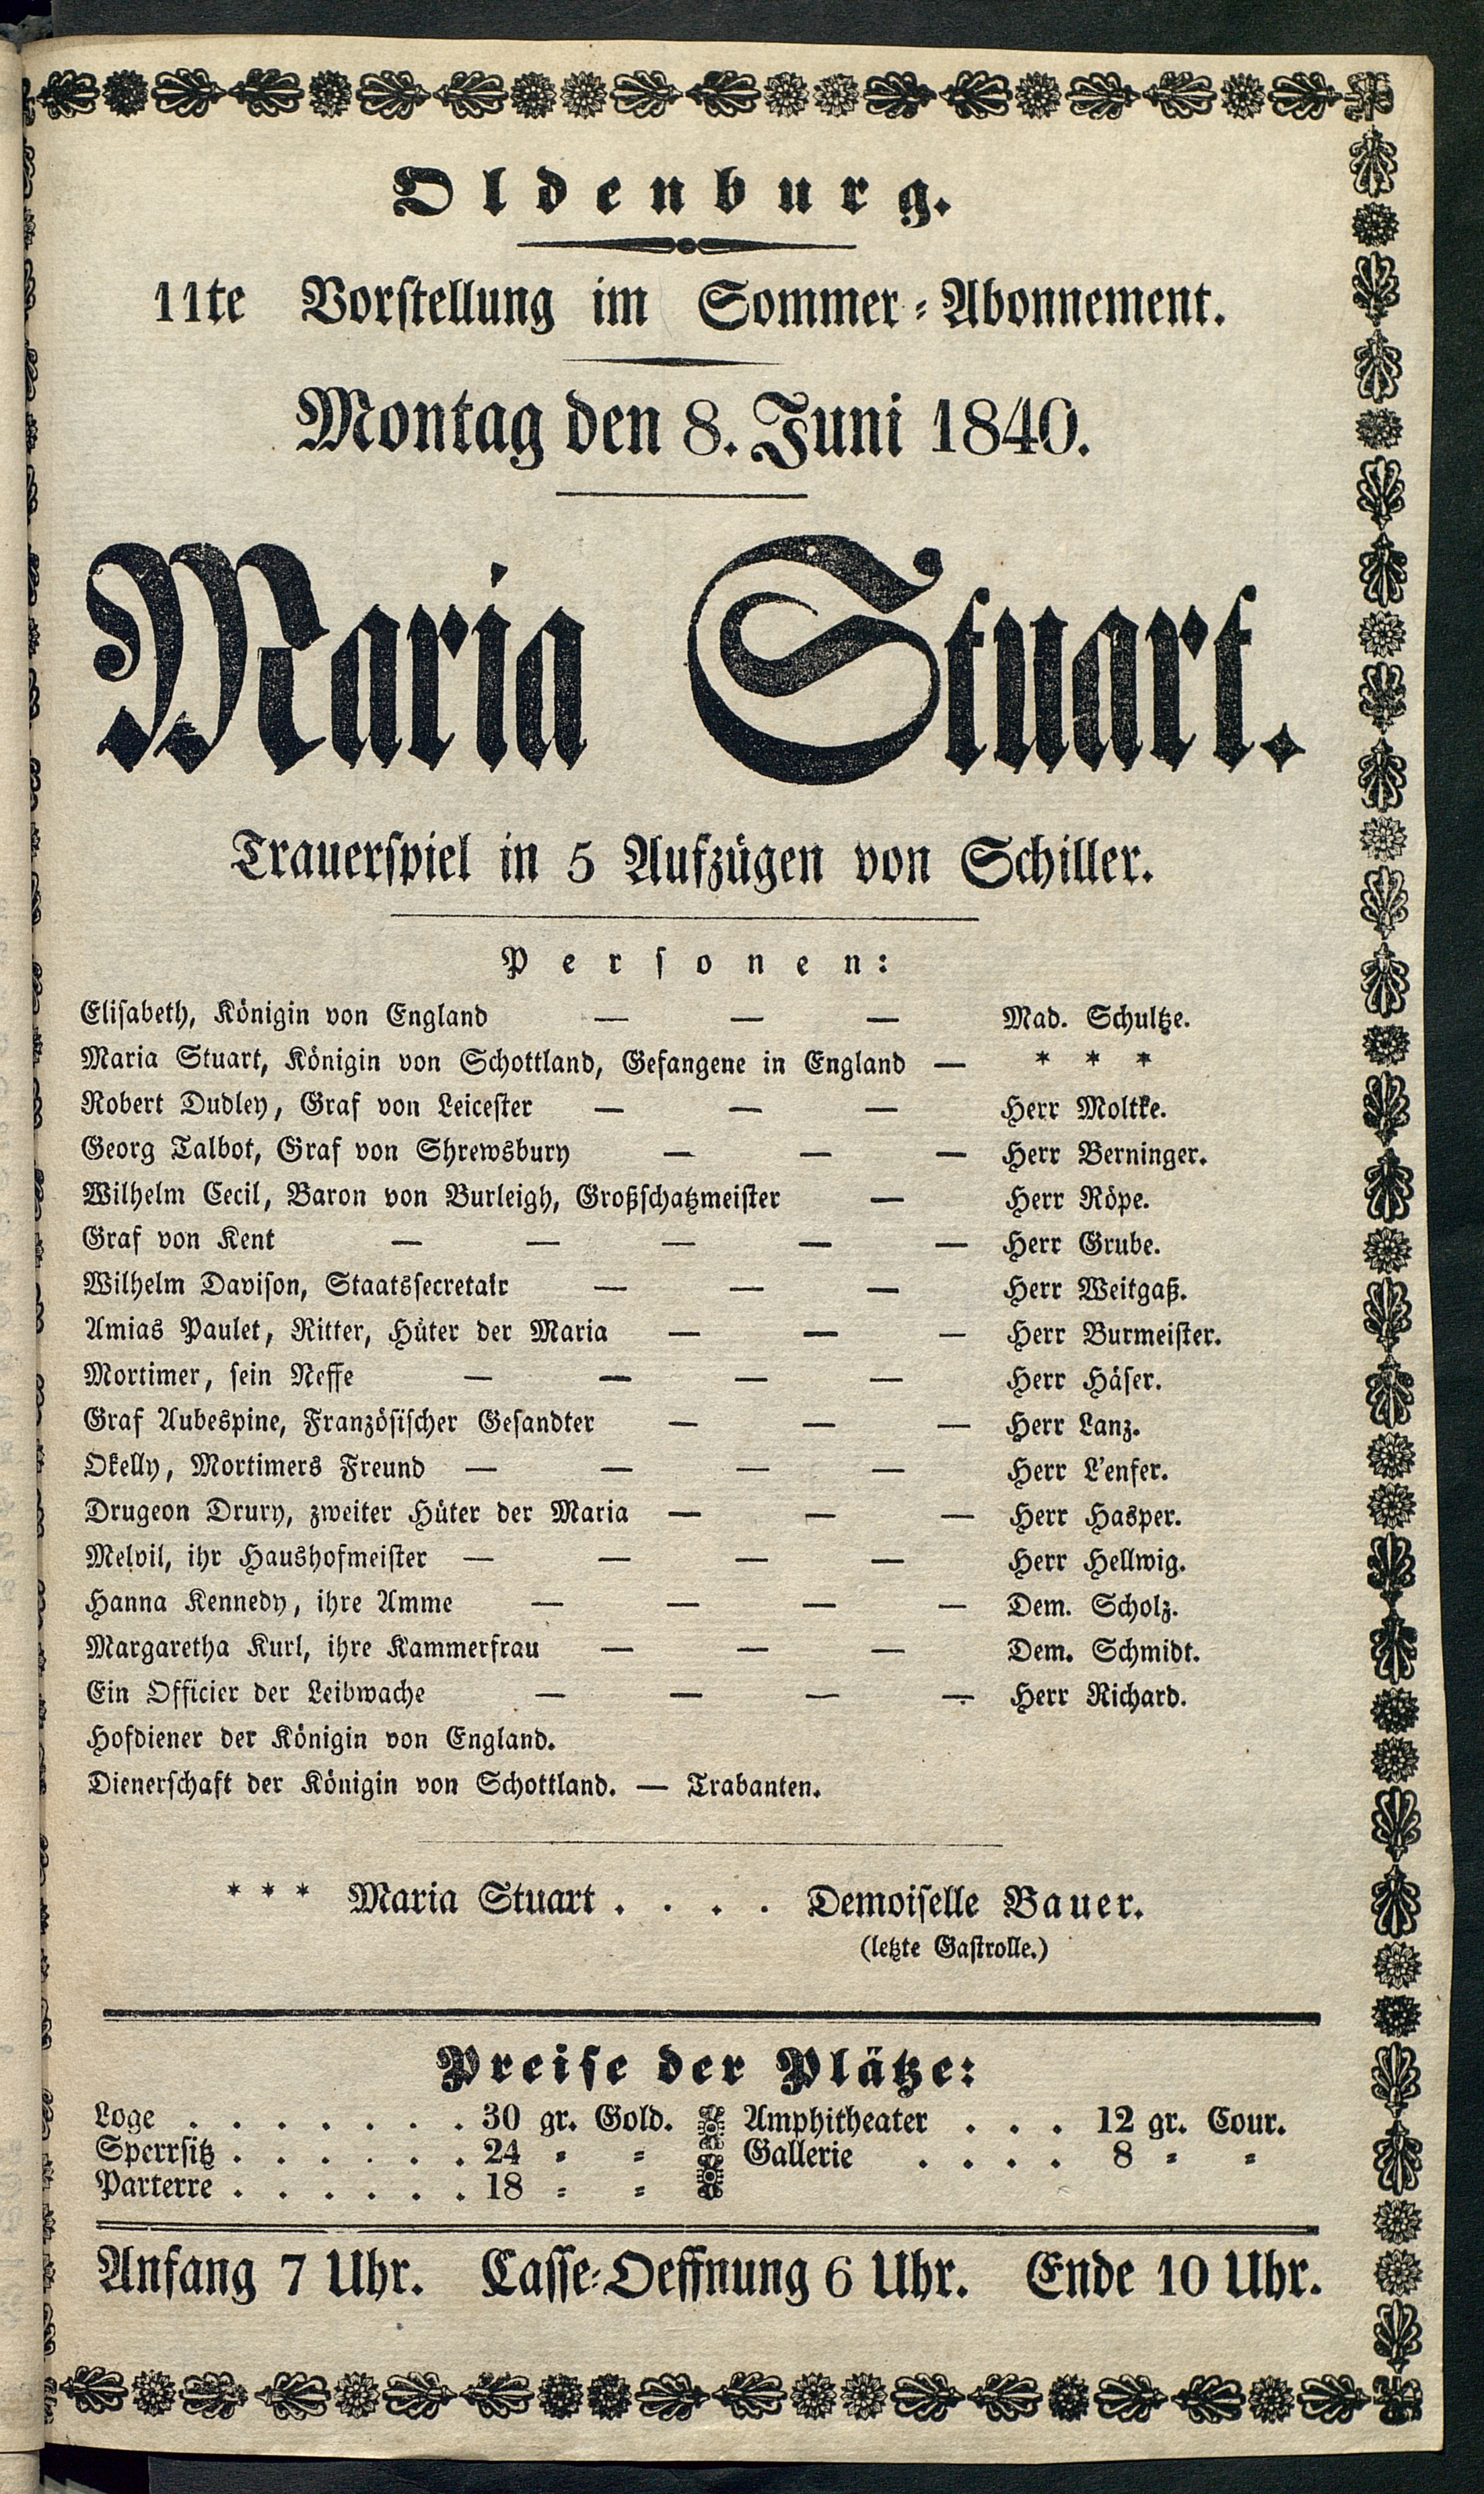 Oldenburg.
11te Vorstellung im Sommer-Abonnement.
Montag den 8. Juni 1840.
Maria Stuart.
Trauerspiel in 5 Aufzügen von Schiller.
Personen:
Elisabeth, Königin von England — — — Mad. Schultze.
Maria Stuart, Königin von Schottland, Gefangene in England — * * *
Robert Dudley, Graf von Leicester — — — Herr Moltke.
Georg Talbot, Graf von Shrewsbury — — — Herr Berninger.
Wilhelm Cecil, Baron von Burleigh, Großschatzmeister — Herr Röpe.
Graf von Kent — — — — — Herr Grube.
Wilhelm Davison, Staatssecretair — — — Herr Weitgaß.
Amias Paulet, Ritter, Hüter der Maria — — — Herr Burmeister.
Mortimer, sein Neffe — — — — Herr Häser.
Graf Aubespine, Französischer Gesandter — — — Herr Lanz.
Okelly, Mortimers Freund — — — — Herr L'enfer.
Drugeon Drury, zweiter Hüter der Maria — — — Herr Hasper.
Melvil, ihr Haushofmeister — — — — Herr Hellwig.
Hanna Kennedy, ihre Amme — — — — Dem. Scholz.
Margaretha Kurl, ihre Kammerfrau — — — Dem. Schmidt.
Ein Officier der Leibwache — — — — Herr Richard.
Hofdiener der Königin von England.
Dienerschaft der Königin von Schottland. — Trabanten.
* * * Maria Stuart . . . . Demoiselle Bauer.
(letzte Gastrolle.)
Preise der Plätze:
Loge . . . . . . . 30 gr. Gold.
Sperrsitz . . . . . . 24 = =
Parterre . . . . . . 18 = =
Amphitheater . . . 12 gr. Cour.
Gallerie . . . . 8 = =
Anfang 7 Uhr. Casse-Oeffnung 6 Uhr. Ende 10 Uhr.